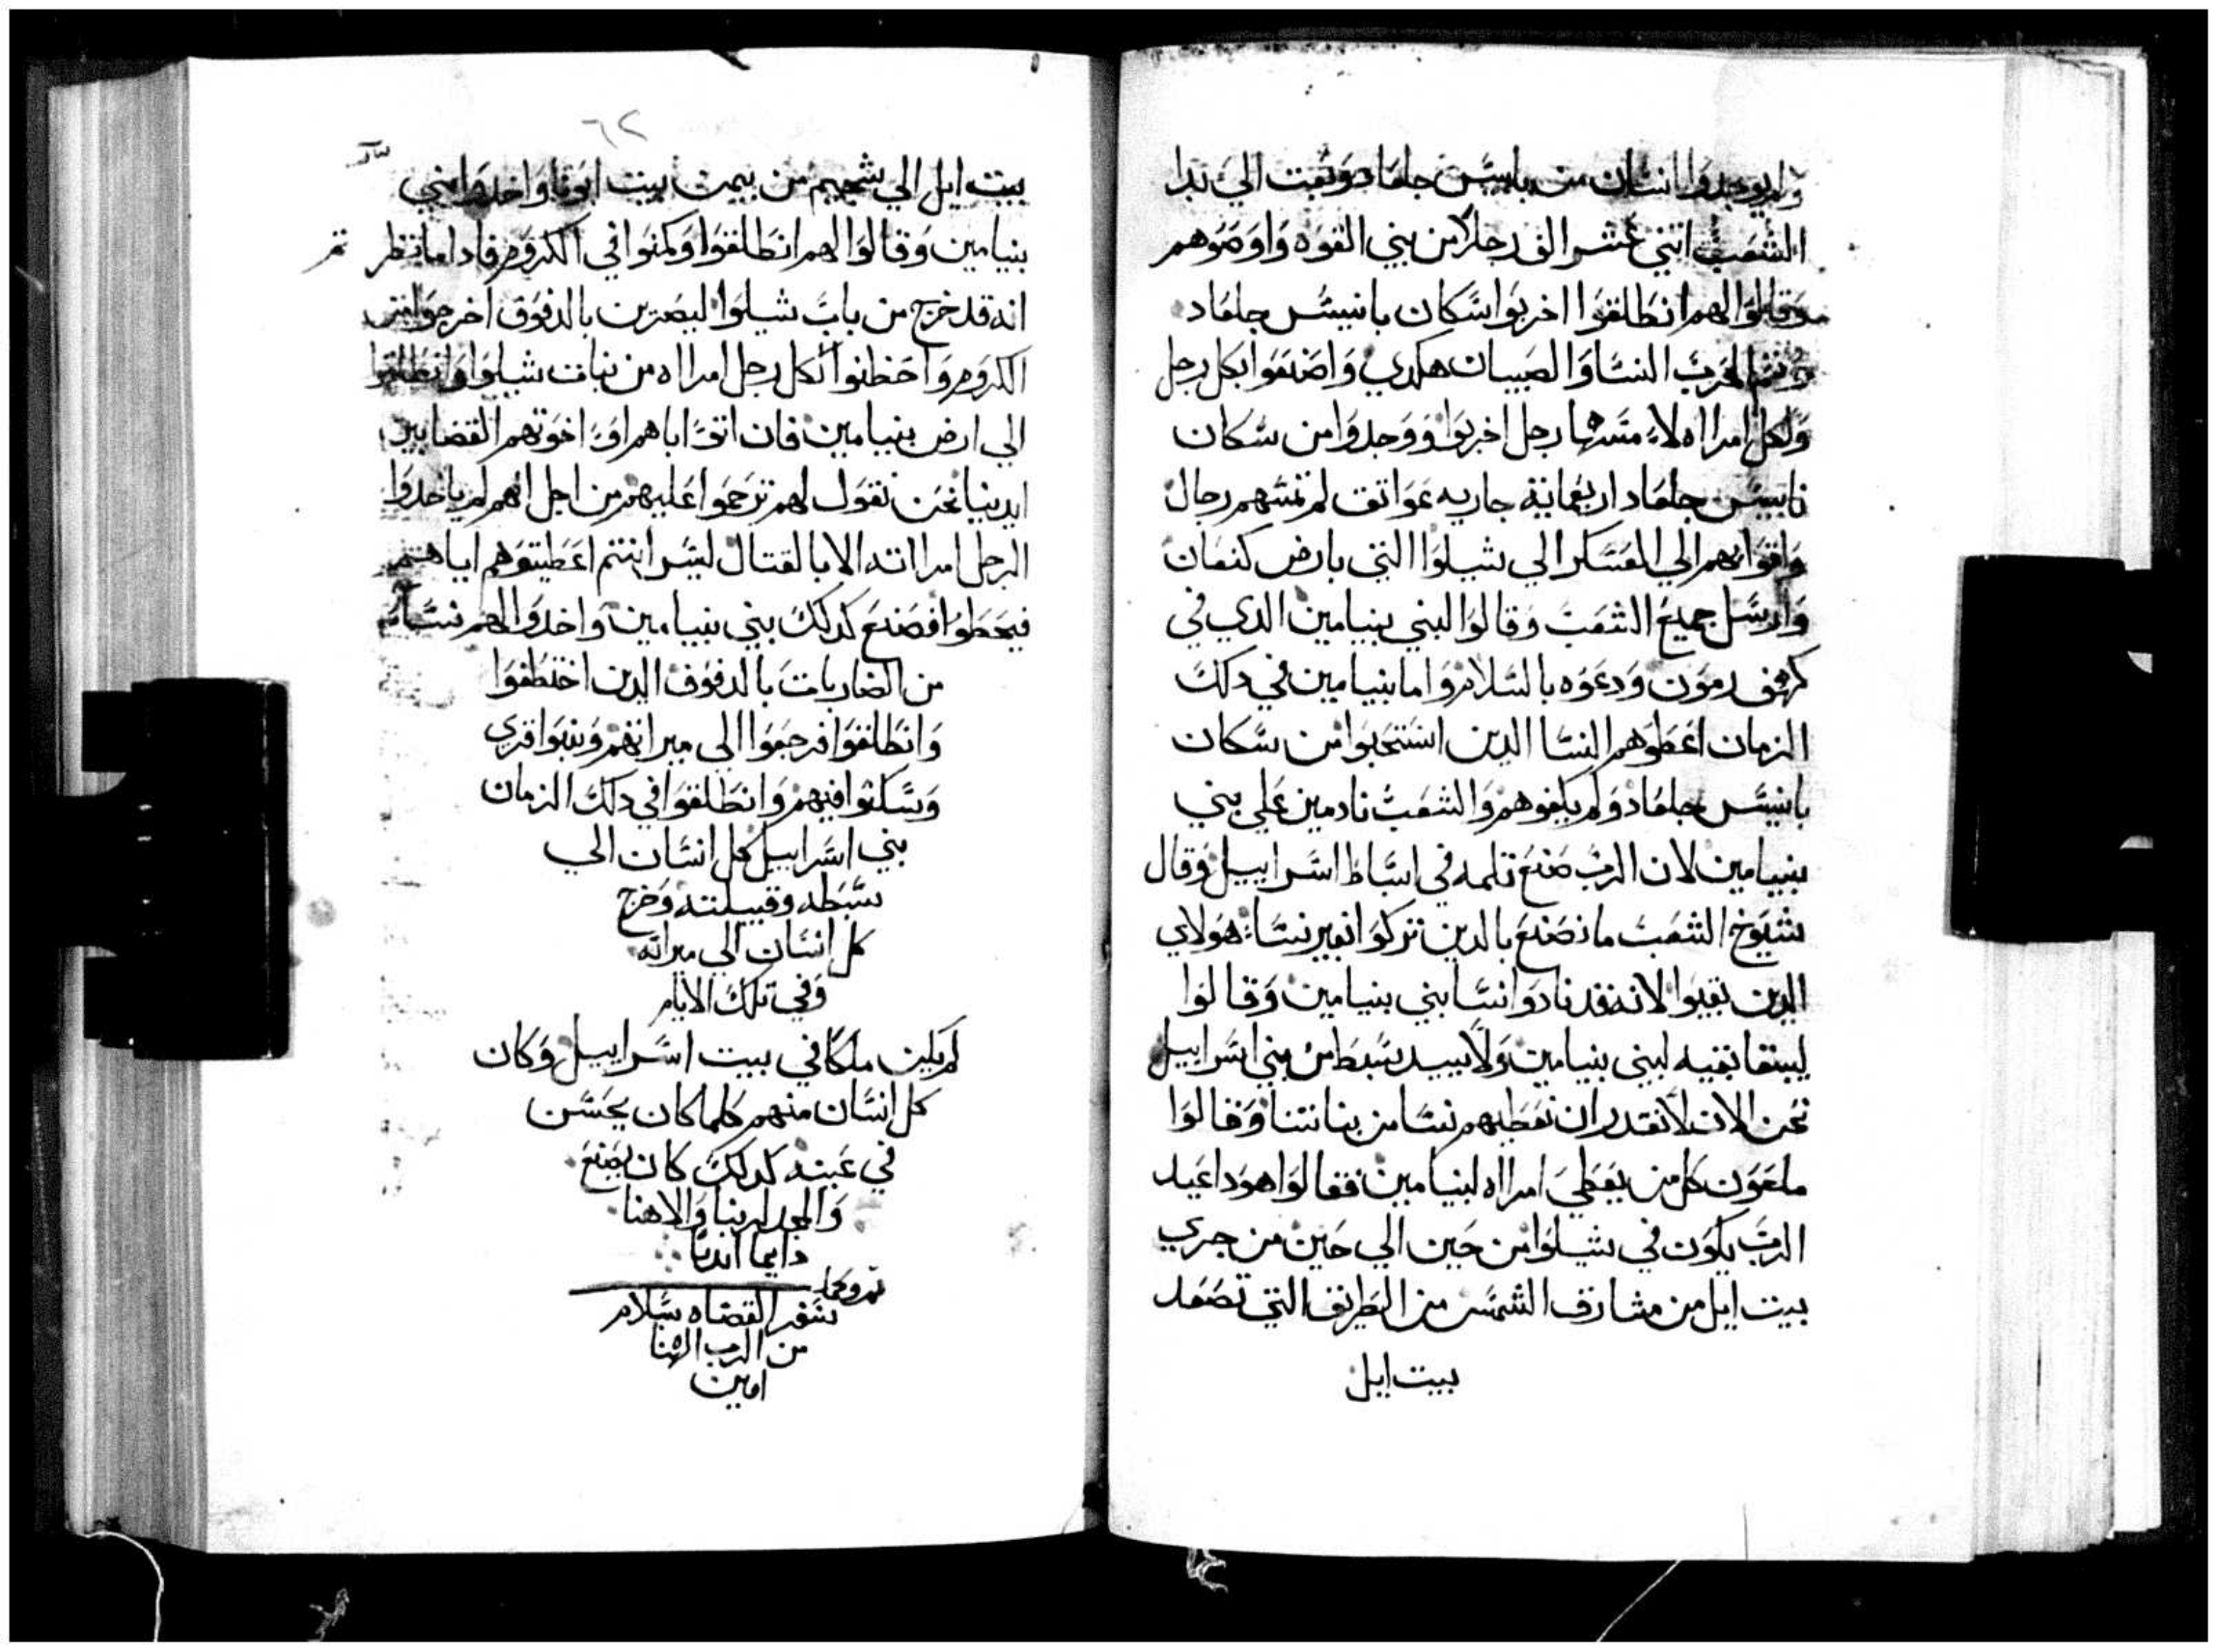 ولم يوجدوا انسان من يابيس جلعاد وبعث الي ندا
الشعب اتني عشر الف رجلا من بني القوه واوصوهم
وقالوا لهم انطلقوا اخربوا سكان يابيس جلعاد
النسا والصبيان هكدي واصنعوا بكل رجل
ولكل امراه لا مسها رجل اخربوا ووجدوا من سكان
يابيس جلعاد اربعماية جاريه عواتق لم تمسهم رجال
واتوا بهم الي العسكر الي شيلوا التي بارض كنعان
وارسل جميع الشعب وقالوا لبني بنيامين الدي في
كهف رمون ودعوه بالسلام واما بنيامين في دلك
الزمان اعطوهم النسا الدين استحبوا من سكان
يابيس جلعاد ولم يكفوهم والشعب نادمين علي بني
بنيامين لان الرب صنع تلمه في اسباط اسراييل وقال
شيوخ الشعب ما نصنع بالدين تركوا بغير نسا هولاي
الدين بقيوا لانه قد نادوا نسا بني بنيامين وقالوا
ليبقا بقيه لبني بنيامين ولا يبيد سبط من بني اسراييل
نحن الان لا نقدر ان نعطيهم نسا من بناتنا وقالوا
ملعون كل من يعطي امراه لبنيامين فقالوا هودا عيد
الرب يكون في شيلوا من حين الي حين من جري
بيت ايل من مشارف الشمس من الطريق التي تصعد
بيت ايل
٦٢
بيت ايل الي شجيم من بيمت بيت ابونا واخدوا بني
بنيامين وقالوا لهم انطلقوا وكمنوا في الكروم فادا ما تنظر
انه قد خرج من باب شيلوا ليضربن بالدفوق اخرجوا من
الكروم واخطفوا لكل رجل امراه من نبات شيلوا وانطلقوا
الي ارض بنيامين فان اتو اباهم او اخوتهم القضايين
ايدينا نحن نقول لهم ترحموا عليهم من اجل انهم لم ياخدوا
الرجل امراته الا بالقتال ليس انتم اعطيتوهم اياهم
فيخطوا فصنع كدلك بني بنيامين واخدوا لهم نسا
من الضاربات بالدفوف الدين اختطفوا
وانطلقوا فرجعوا الي ميراتهم وبنوا قري
وسكنوا فيهم وانطلقوا في دلك الزمان
بني اسراييل كل انسان الي
سبطه وقبيلته وخرج
كل انسان الي ميراته
وفي تلك الايام
لم يكن ملكا في بيت اسراييل وكان
كل انسان منهم كلما كان يحسن
في عينه كدلك كان يصنع
والمجد لربنا والاهنا
دايما ابديا
تم وكمل
سفر القضاه بسلام
من الرب الهنا
امين